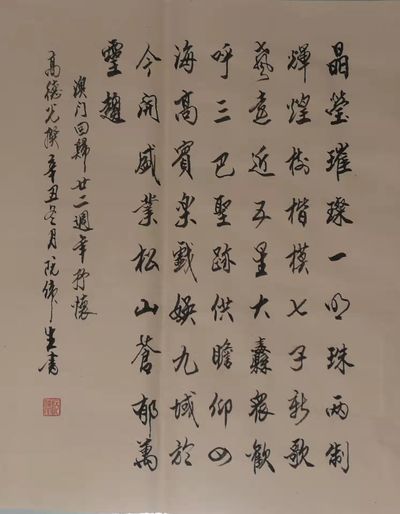 晶瑩璀璨一明珠兩制
輝煌樹楷模七子新歌
遠近五星大纛眾歡
呼三巴聖跡供瞻仰四
海高賓樂戲娛九域於
今開盛業松山蒼郁萬
靈趨
澳门回歸廿二週年抒懷
高德光撰辛丑冬月阮偉生書